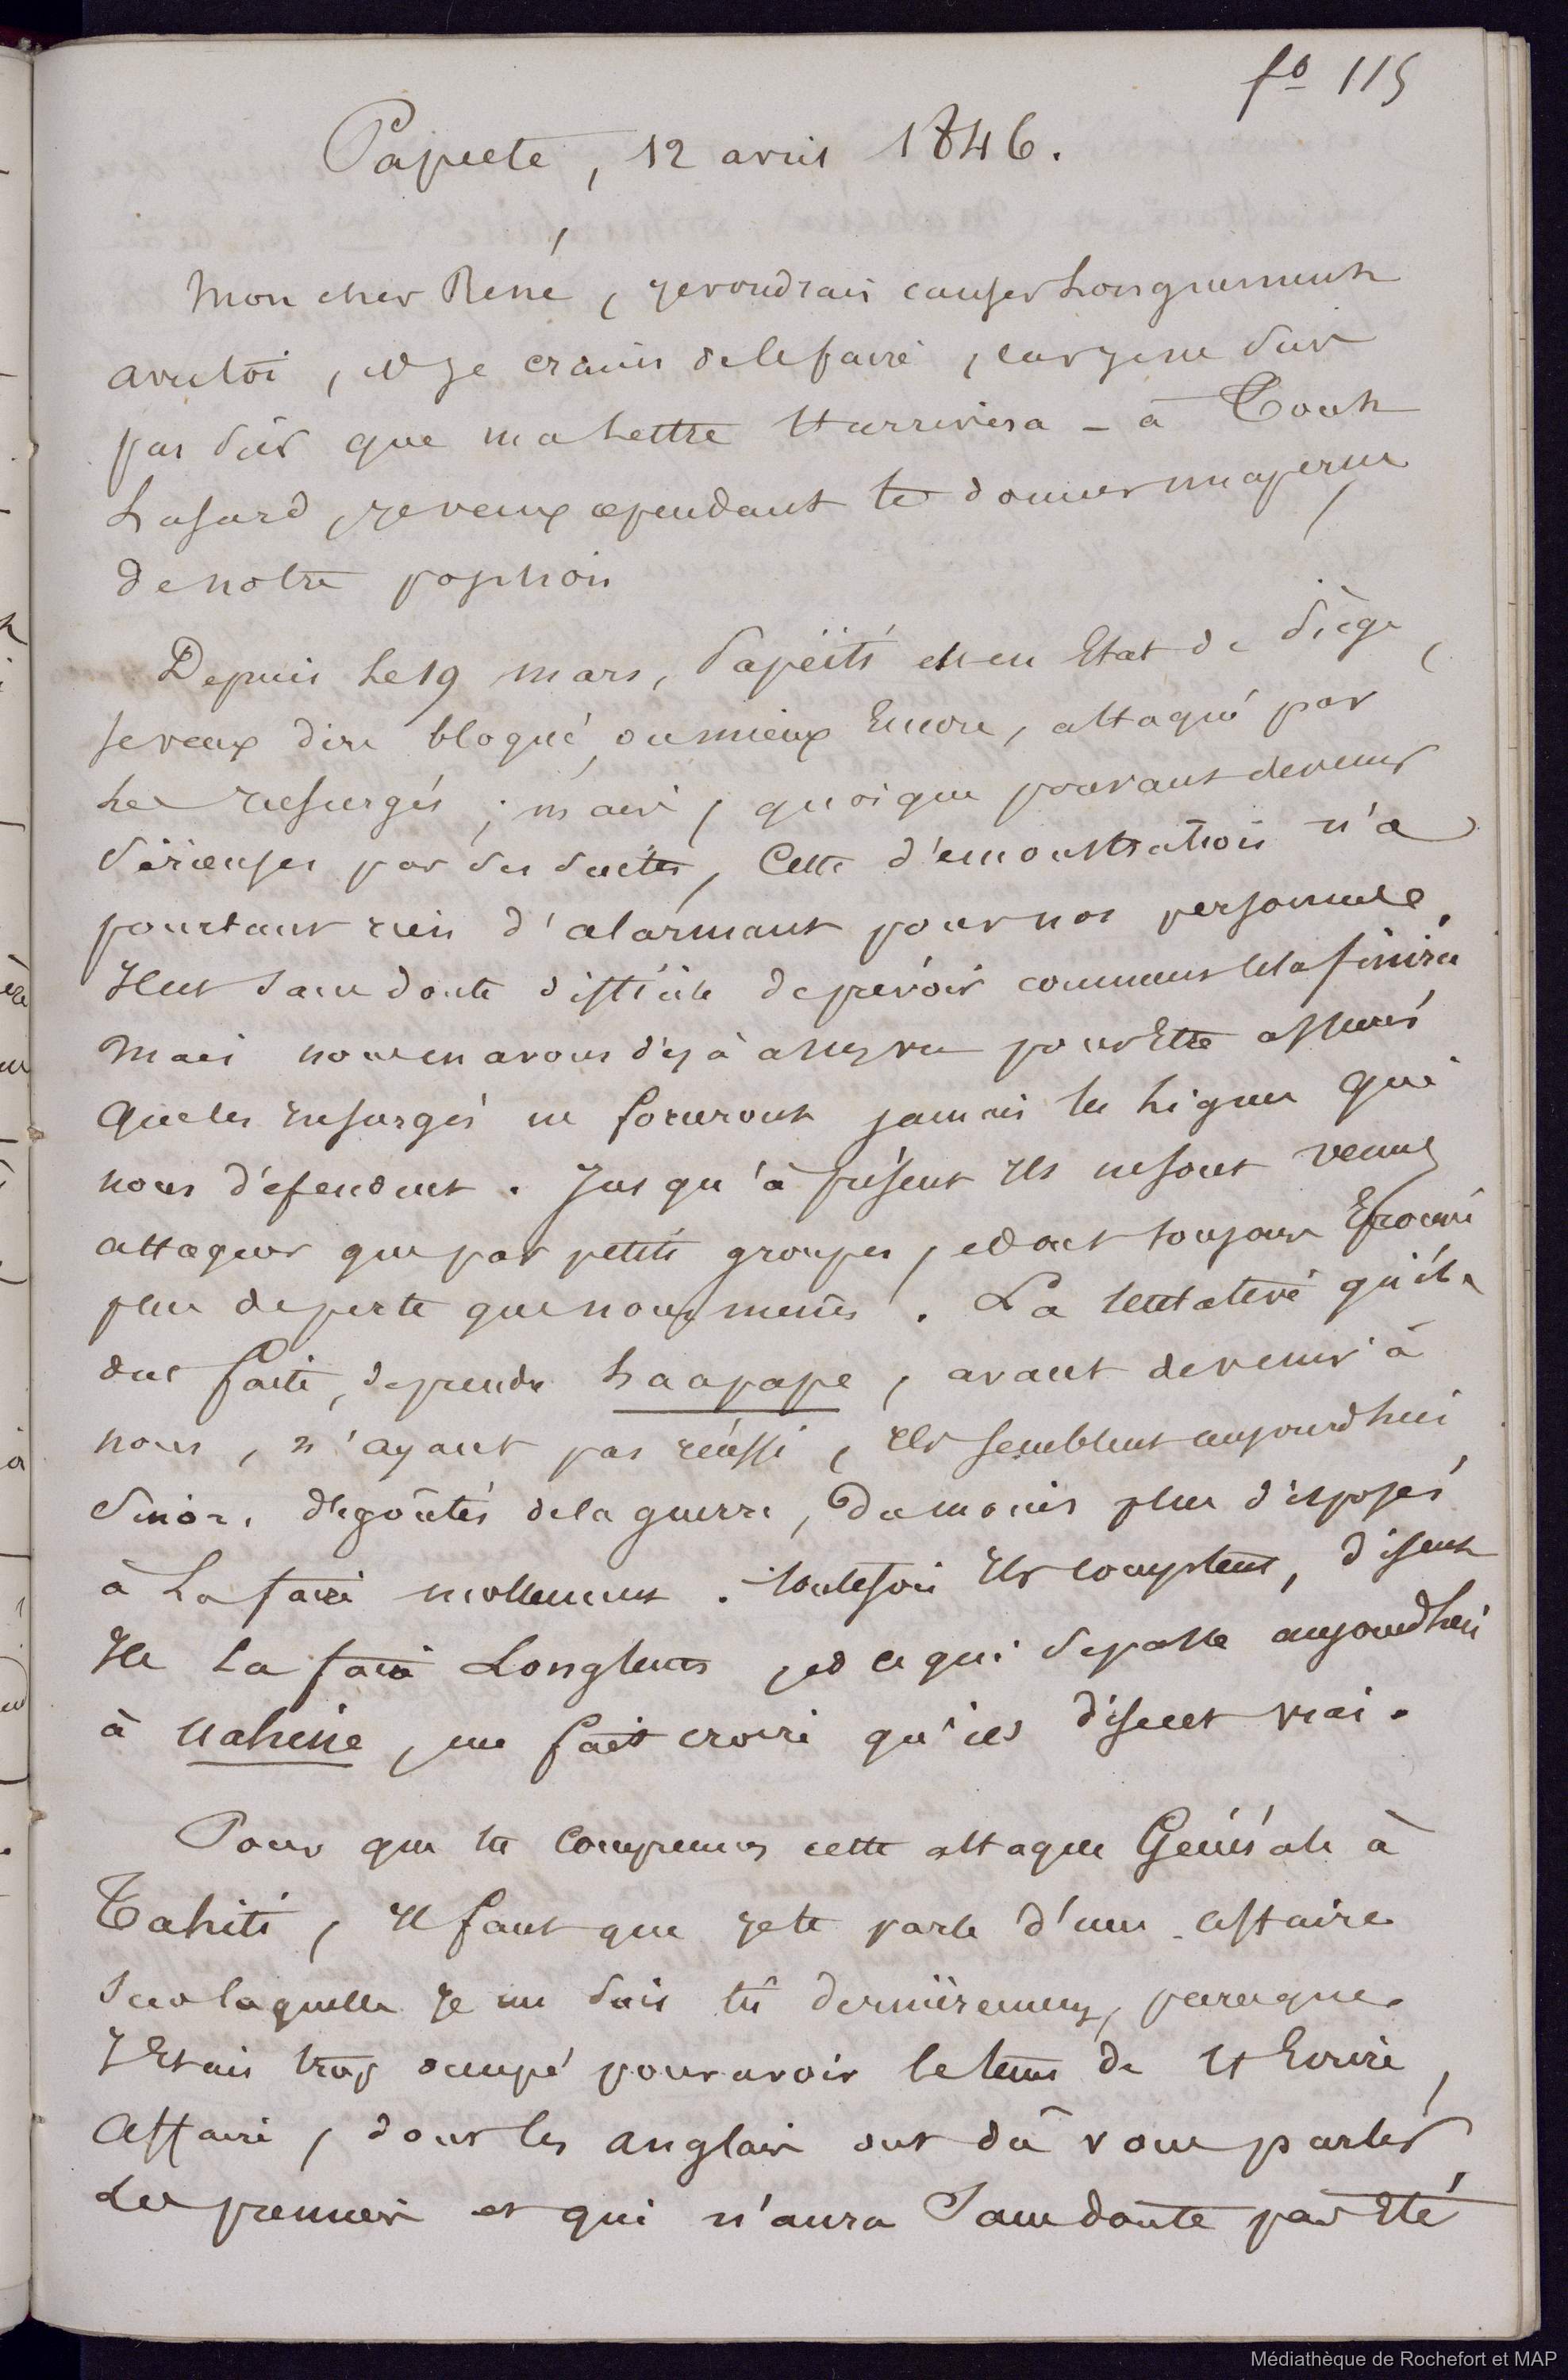 fo 115
Papeete, 12 avril 1846.
Mon cher René, je voudrais causer longuement
avec toi, et je crains de le faire, car je ne suis
pas sûr que ma lettre t'arrivera - à tout
hasard, je veux cependant te donner un aperçu
de notre position
Depuis le 19 mars, Papéïti est en Etat de siège,
je veux dire bloqué, ou mieux Encore, attaqué par
les insurgés; mais, quoique pouvant devenir
sérieuses par ses suites, Cette démonstration n'a
pourtant rien d'alarmant pour nos personnes.
Il est sans doute difficile de prévoir comment cela finira
Mais nous en avons déjà assez vu pour Etre assurés
que les insurgés ne forceront jamais les lignes qui
nous défendent. Jusqu'à présent ils ne sont venus
attaquer que par petits groupes, et ont toujours Eprouvé
plus de perte que nous mêmes. La tentative qu'ils
ont faite, de prendre haapape, avant de venir à
nous, n'ayant pas réussi, ils semblent aujourd'hui,
sinon, dégoûtés de la guerre, Du moins plus disposés
à la faire mollement. toutefois ils comptent, disent
ils la faire Longtems, et ce qui se passe aujourdhui
à uahine, me fait croire qu'ils disent vrai.
Pour que tu Comprennes cette attaque Générale à
Tahiti, il faut que je te parle d'une affaire
sur laquelle je me suis tû dernièrement, parceque
j'Etais trop occupé pour avoir le tems de t'Ecrire,
affaire, dont les anglais ont dû vous parler
les premiers et qui n'aura sans doute pas Eté
Médiathèque de Rochefort et MAP